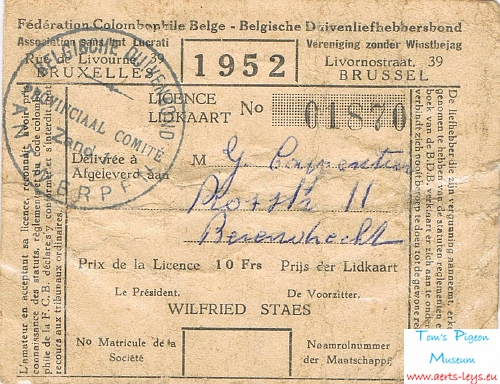 Fédération Colombophile Belge - Belgische Duivenliefhebbersbond
Association sans but Lucratif
Rue de Livourne, 39
BRUXELLES
1952
Vereniging zonder Winstbejag
Livornostraat, 39
BRUSSEL
BELGISCHE DUIVENBOND
PROVINCIAAL COMITÉ
Zand
ANTWERPEN
LICENCE
LIDKAART
No 01870
Délivrée à
Afgeleverd aan
M G. Carpentier
11
Prix de la Licence 10 Frs Prijs der Lidkaart
Le Président, De Voorzitter,
WILFRIED STAES
No Matricule de la
Société
Naamrolnummer
der Maatschappij
L'amateur en acceptant sa licence, reconnaît avoir pris
connaissance des statuts, règlements et du code colombo-
phile de la F.C.B. déclare s'y conformer et s'interdire tout
recours aux tribunaux ordinaires.
De liefhebber die zijn vergunning aanneemt, erkent
genomen te hebben van de statuten reglementen e
boek van de B.D.B. verklaart er zich aan te onder
verbindt zich nooit beroep te doen tot de gewone re
Tom's Pigeon
Museum
www.aerts-leys.eu